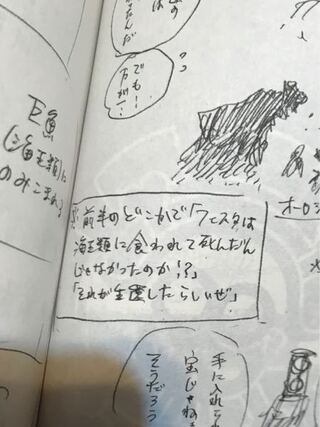 でも!
万が一!
巨魚
(海王類)に
のみこまれる
※前半のどこかで「フェスタは
海王類に食われて死んだん
じゃなかったのか!?」
「それが生還したらしいぜ」
オーロジ
手に入れられ
宝じゃねェ
そうだろう